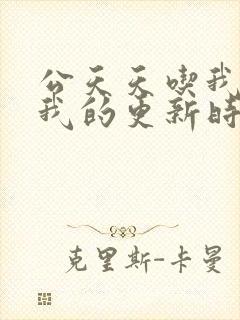 公天天喫我
我的更新時
克里斯-卡曼